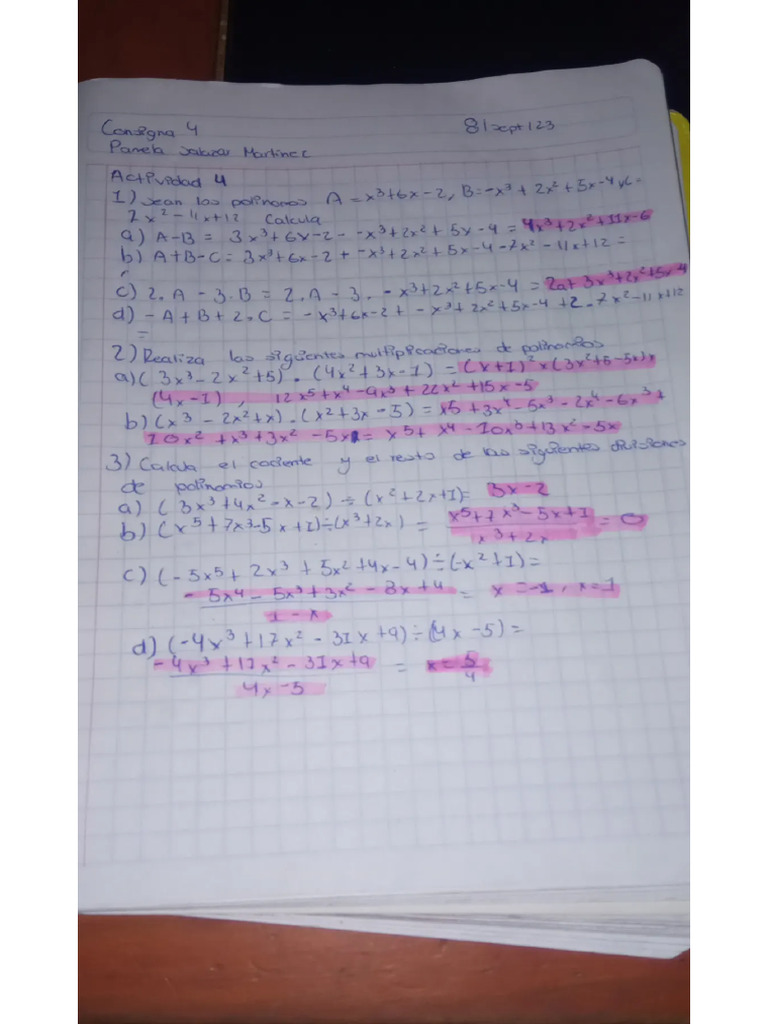 Consigna 4 8/sept/23
Pamela Salazar Martinez
Actividad 4
1) Sean los polinomos A = x³+6x-2, B=-x³+2x²+5x-4 y C=
7x²-11x+12 Calcula
a) A-B = 3x³+6x-2--x³+2x²+5x-4 = 4x³+2x²+11x-6
b) A+B-C = 3x³+6x-2+-x³+2x²+5x-4-7x²-11x+12=
c) 2.A-3.B = 2.A-3.-x³+2x²+5x-4 = 2a+3x³+2x²+5x-4
d) -A+B+2.C = -x³+6x-2+-x³+2x²+5x-4+2.7x²-11x+12
=
2) Realiza las siguientes multiplicaciones de polinomios
a) (3x³-2x²+5).(4x²+3x-1) = (x+1)²x(3x²+5-5x)x
(4x-1), 12x⁵+x⁴-9x³+22x²+15x-5
b) (x³-2x²+x).(x²+3x-5) = x5+3x⁴-5x³-2x⁴-6x³+
10x²+x³+3x²-5x = x⁵+x⁴-10x³+13x²-5x
3) Calcula el cociente y el resto de las siguientes divisiones
de polinomios
a) (3x³+4x²-x-2)÷(x²+2x+1)= 3x-2
b) (x⁵+7x³-5x+1)÷(x³+2x) = x⁵+7x³-5x+1 = 0
x³+2x
c) (-5x⁵+2x³+5x²+4x-4)÷(-x²+1)=
-5x⁴-5x³+3x²-8x+4 = x=-1, x=1
1-x
d) (-4x³+17x²-31x+9)÷(4x-5)=
-4x³+17x²-31x+9 = x=5/4
4x-5